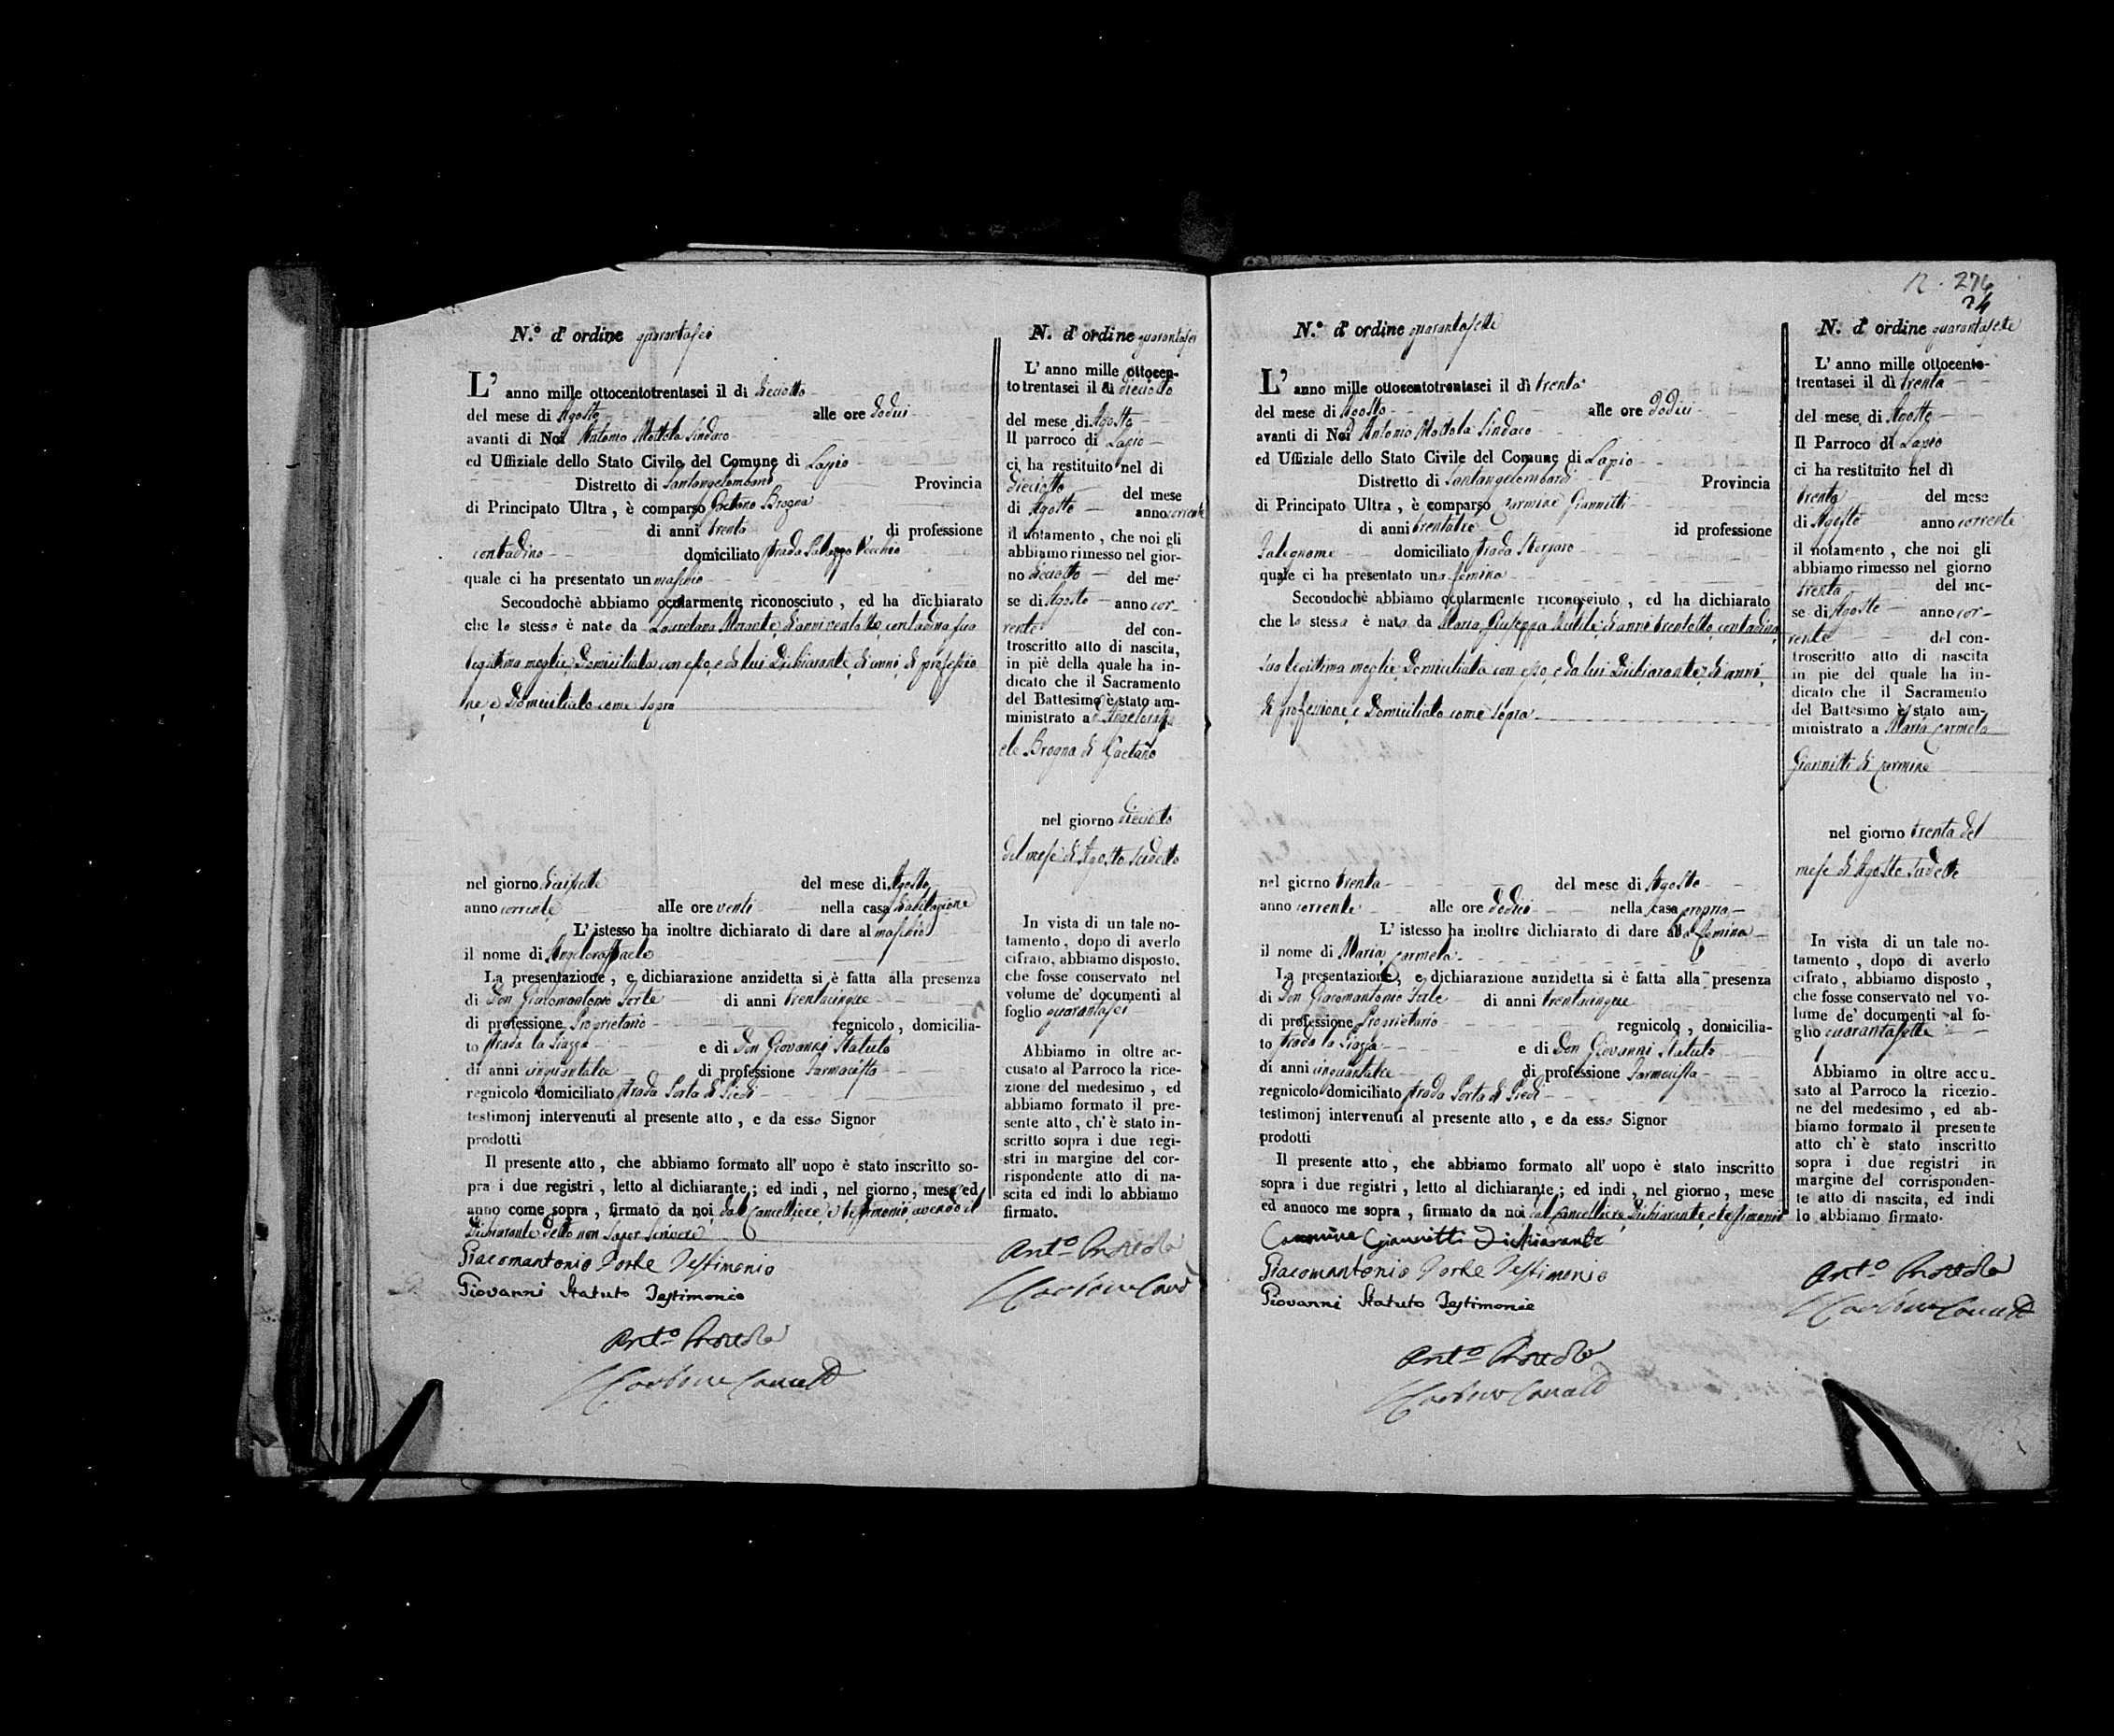 N.º d' ordine quarantasei
L' anno mille ottocentotrentasei il di dieciotto
del mese di Agosto alle ore dodici
avanti di Noi Antonio Mottola Sindaco
ed Uffiziale dello Stato Civile del Comune di Lapio
Distretto di Santangelombardi Provincia
di Principato Ultra, è comparso Gaetano Brogna
di anni trenta di professione
contadino domiciliato strada Palazzo Vecchio
quale ci ha presentato un maschio
Secondochè abbiamo ocularmente riconosciuto, ed ha dichiarato
che lo stesso è nato da Lauretana Morante, di anni ventotto, contadina sua
legittima moglie, Domiciliata con esso, e da lui Dichiarante, di anni, di professio
ne, e Domiciliato come sopra
nel giorno dieisette del mese di Agosto
anno corrente alle ore venti nella casa d'abitazione
L' istesso ha inoltre dichiarato di dare al maschio
il nome di Angeloraffaele
La presentazione, e dichiarazione anzidetta si è fatta alla presenza
di Don Giacomantonio Forte di anni trentacinque
di professione Proprietario regnicolo, domicilia-
to strada la Piazza e di Don Giovanni Statuto
di anni cinquantatre di professione Farmacista
regnicolo domiciliato strada Porta di Piedi
testimonj intervenuti al presente atto, e da esso Signor
prodotti
Il presente atto, che abbiamo formato all' uopo è stato inscritto so-
pra i due registri, letto al dichiarante; ed indi, nel giorno, mese ed
anno come sopra, firmato da noi dal Cancelliere, e testimonio, avendo il
Dichiarante detto non saper scrivere
Giacomantonio Forte Testimonio
Giovanni Statuto Testimonio
Ant.º Mottola
N. d' ordine quarantasei
L' anno mille ottocen-
to trentasei il di dieciotto
del mese di Agosto
Il parroco di Lapio
ci ha restituito nel di
dieciotto del mese
di Agosto anno corrente
il notamento, che noi gli
abbiamo rimesso nel gior-
no dieciotto del me-
se di Agosto anno cor-
rente del con-
troscritto atto di nascita,
in piè della quale ha in-
dicato che il Sacramento
del Battesimo è stato am-
ministrato a Angeloraffa
ele Brogna di Gaetano
nel giorno dieciotto
del mese di Agosto sudetto
In vista di un tale no-
tamento, dopo di averlo
cifrato, abbiamo disposto,
che fosse conservato nel
volume de' documenti al
foglio quarantasei
Abbiamo in oltre ac-
cusato al Parroco la rice-
zione del medesimo, ed
abbiamo formato il pre-
sente atto, ch' è stato in-
scritto sopra i due regi-
stri in margine del cor-
rispondente atto di na-
scita ed indi lo abbiamo
firmato.
Ant.º Mottola
N. 276
24
N.º d' ordine quarantasette
L' anno mille ottocentotrentasei il dì trenta
del mese di Agosto alle ore dodici
avanti di Noi Antonio Mottola Sindaco
ed Uffiziale dello Stato Civile del Comune di Lapio
Distretto di Santangelombardi Provincia
di Principato Ultra, è comparso Carmine Giannitti
di anni trentatre id professione
Falegname domiciliato strada
quale ci ha presentato una femina
Secondochè abbiamo ocularmente riconosciuto, ed ha dichiarato
che la stessa è nata da Maria Giuseppa di anni trentotto, contadina,
sua legittima moglie, Domiciliata con esso, e da lui Dichiarante, di anni,
di professione, e Domiciliato come sopra
nel giorno trenta del mese di Agosto
anno corrente alle ore dodici nella casa propria
L' istesso ha inoltre dichiarato di dare alla femina
il nome di Maria Carmela
La presentazione, e dichiarazione anzidetta si è fatta alla presenza
di Don Giacomantonio Forte di anni trentacinque
di professione Proprietario regnicolo, domicilia-
to strada la Piazza e di Don Giovanni Statuto
di anni cinquantatre di professione Farmacista
regnicolo domiciliato strada Porta di Piedi
testimonj intervenuti al presente atto, e da esso Signor
prodotti
Il presente atto, che abbiamo formato all' uopo è stato inscritto
sopra i due registri, letto al dichiarante; ed indi, nel giorno, mese
ed annoco me sopra, firmato da noi dal Cancelliere, Dichiarante, e testimonio
Carmine Giannitti Dichiarante
Giacomantonio Forte Testimonio
Giovanni Statuto Testimonio
Ant.º Mottola
N. d' ordine quarantasette
L' anno mille ottocento-
trentasei il dì trenta
del mese di Agosto
Il Parroco di Lapio
ci ha restituito nel dì
trenta del mese
di Agosto anno corrente
il notamento, che noi gli
abbiamo rimesso nel giorno
trenta del me-
se di Agosto anno cor-
rente del con-
troscritto atto di nascita
in pie del quale ha in-
dicato che il Sacramento
del Battesimo è stato am-
ministrato a Maria Carmela
Giannitti di Carmine
nel giorno trenta del
mese di Agosto sudetto
In vista di un tale no-
tamento, dopo di averlo
cifrato, abbiamo disposto,
che fosse conservato nel vo-
lume de' documenti al fo-
glio quarantasette
Abbiamo in oltre accu-
sato al Parroco la ricezio-
ne del medesimo, ed ab-
biamo formato il presente
atto ch' è stato inscritto
sopra i due registri in
margine del corrisponden-
te atto di nascita, ed indi
lo abbiamo firmato.
Ant.º Mottola